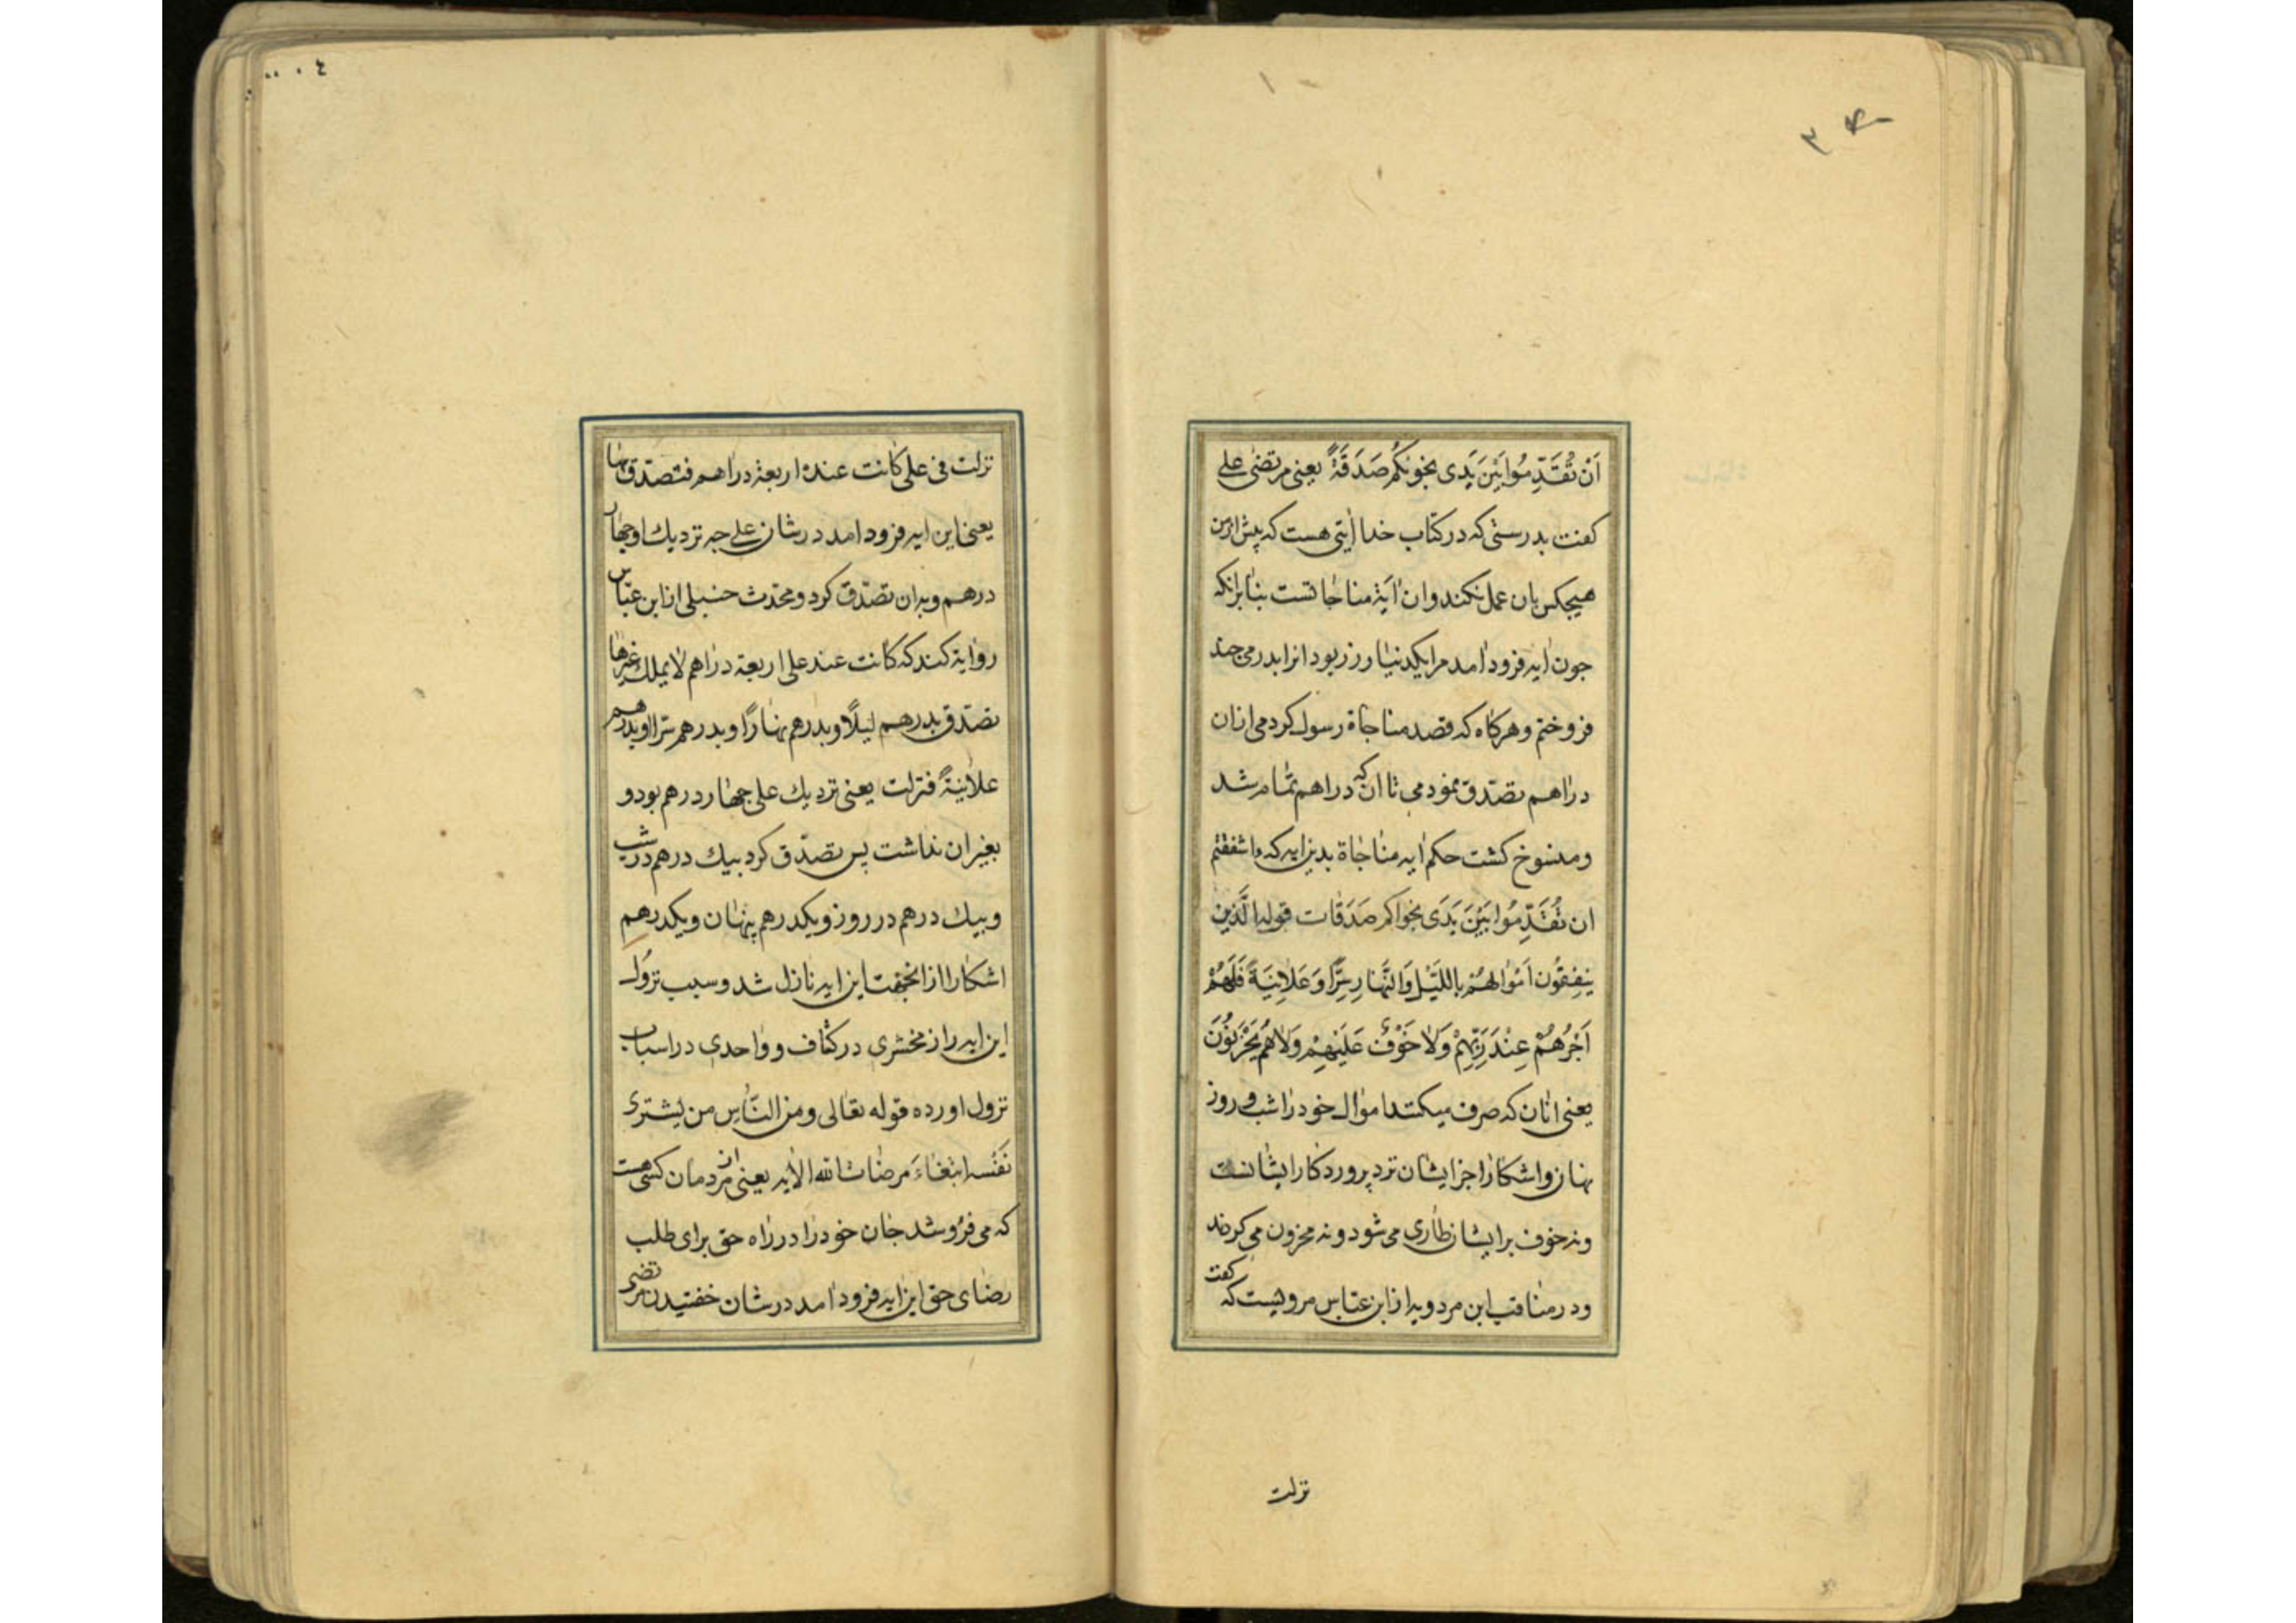 ٣
اَنْ تُقَدِّمُوا بَیْنَ یَدَی نجویٰکُمْ صَدَقَةً یعنی مرتضی علی
کفت بدرستی که در کتاب خدا اٰیتی هست که پیش از من
هیجکس بان عمل نکند و ان اٰیة مناجاتست بنابر انکه
جون ایه فرود امد مرا یکدینار زر بود انرا بدرمی جند
فروختم و هرکاه که قصد مناجاة رسول کردمی ازان
دراهم تصدّق نمودمی تا ان که دراهم تمام شد
و منسوخ کشت حکم ایه مناجاة بدین ایه که ءاشفقتم
ان تُقَدِّمُوا بَیْنَ یَدَی نجواکم صَدَقات قوله الَّذین
یُنْفِقُون اَمْوالهُمْ بِاللَّیْلِ وَالنَّهارِ سِرًّا وَعَلانِیَةً فَلَهُمْ
اَجْرُهُمْ عِنْدَ رَبِّهِمْ وَلا خَوْفٌ عَلَیْهِمْ وَلا هُمْ یَحْزَنُونَ
یعنی انان که صرف میکنند اموال خود را شب و روز
نهان و اشکارا اجر ایشان نزد پروردکار ایشانست
و نه خوف بر ایشان طاری می شود و نه محزون می کردند
و در مناقب ابن مردویه از ابن عبّاس مرویست که کفت
نزلت
٤
نزلت فی علی کانت عنده اربعة دراهم فتصدّق بها
یعنی این ایه فرود امد در شان علی جه نزدیك او جهار
درهم و بدان تصدّق کرد و محدّث حنبلی از ابن عبّاس
روایة کند که کانت عند علی اربعة دراهم لا یملك غیرها
تصدّق بدرهم لیلًا و بدرهم نهارًا و بدرهم سرا و بدرهم
علانیةً فنزلت یعنی نزدیك علی جهار درهم بود و
بغیر ان نداشت پس تصدّق کرد بیك درهم در شب
و بیك درهم در روز و یکدرهم پنهان و یکدرهم
اشکارا از انجهت این ایه نازل شد و سبب نزول
این ایه را زمخشری در کشاف و واحدی در اسباب
نزول اورده قوله تعالی و من النّاس من یشتری
نَفْسه ابتغاءَ مرضات الله الایه یعنی از مردمان کسی هست
که می فروشد جان خود را در راه حق برای طلب
رضای حق این ایه فرود امد در شان خفتیدن مرتضی